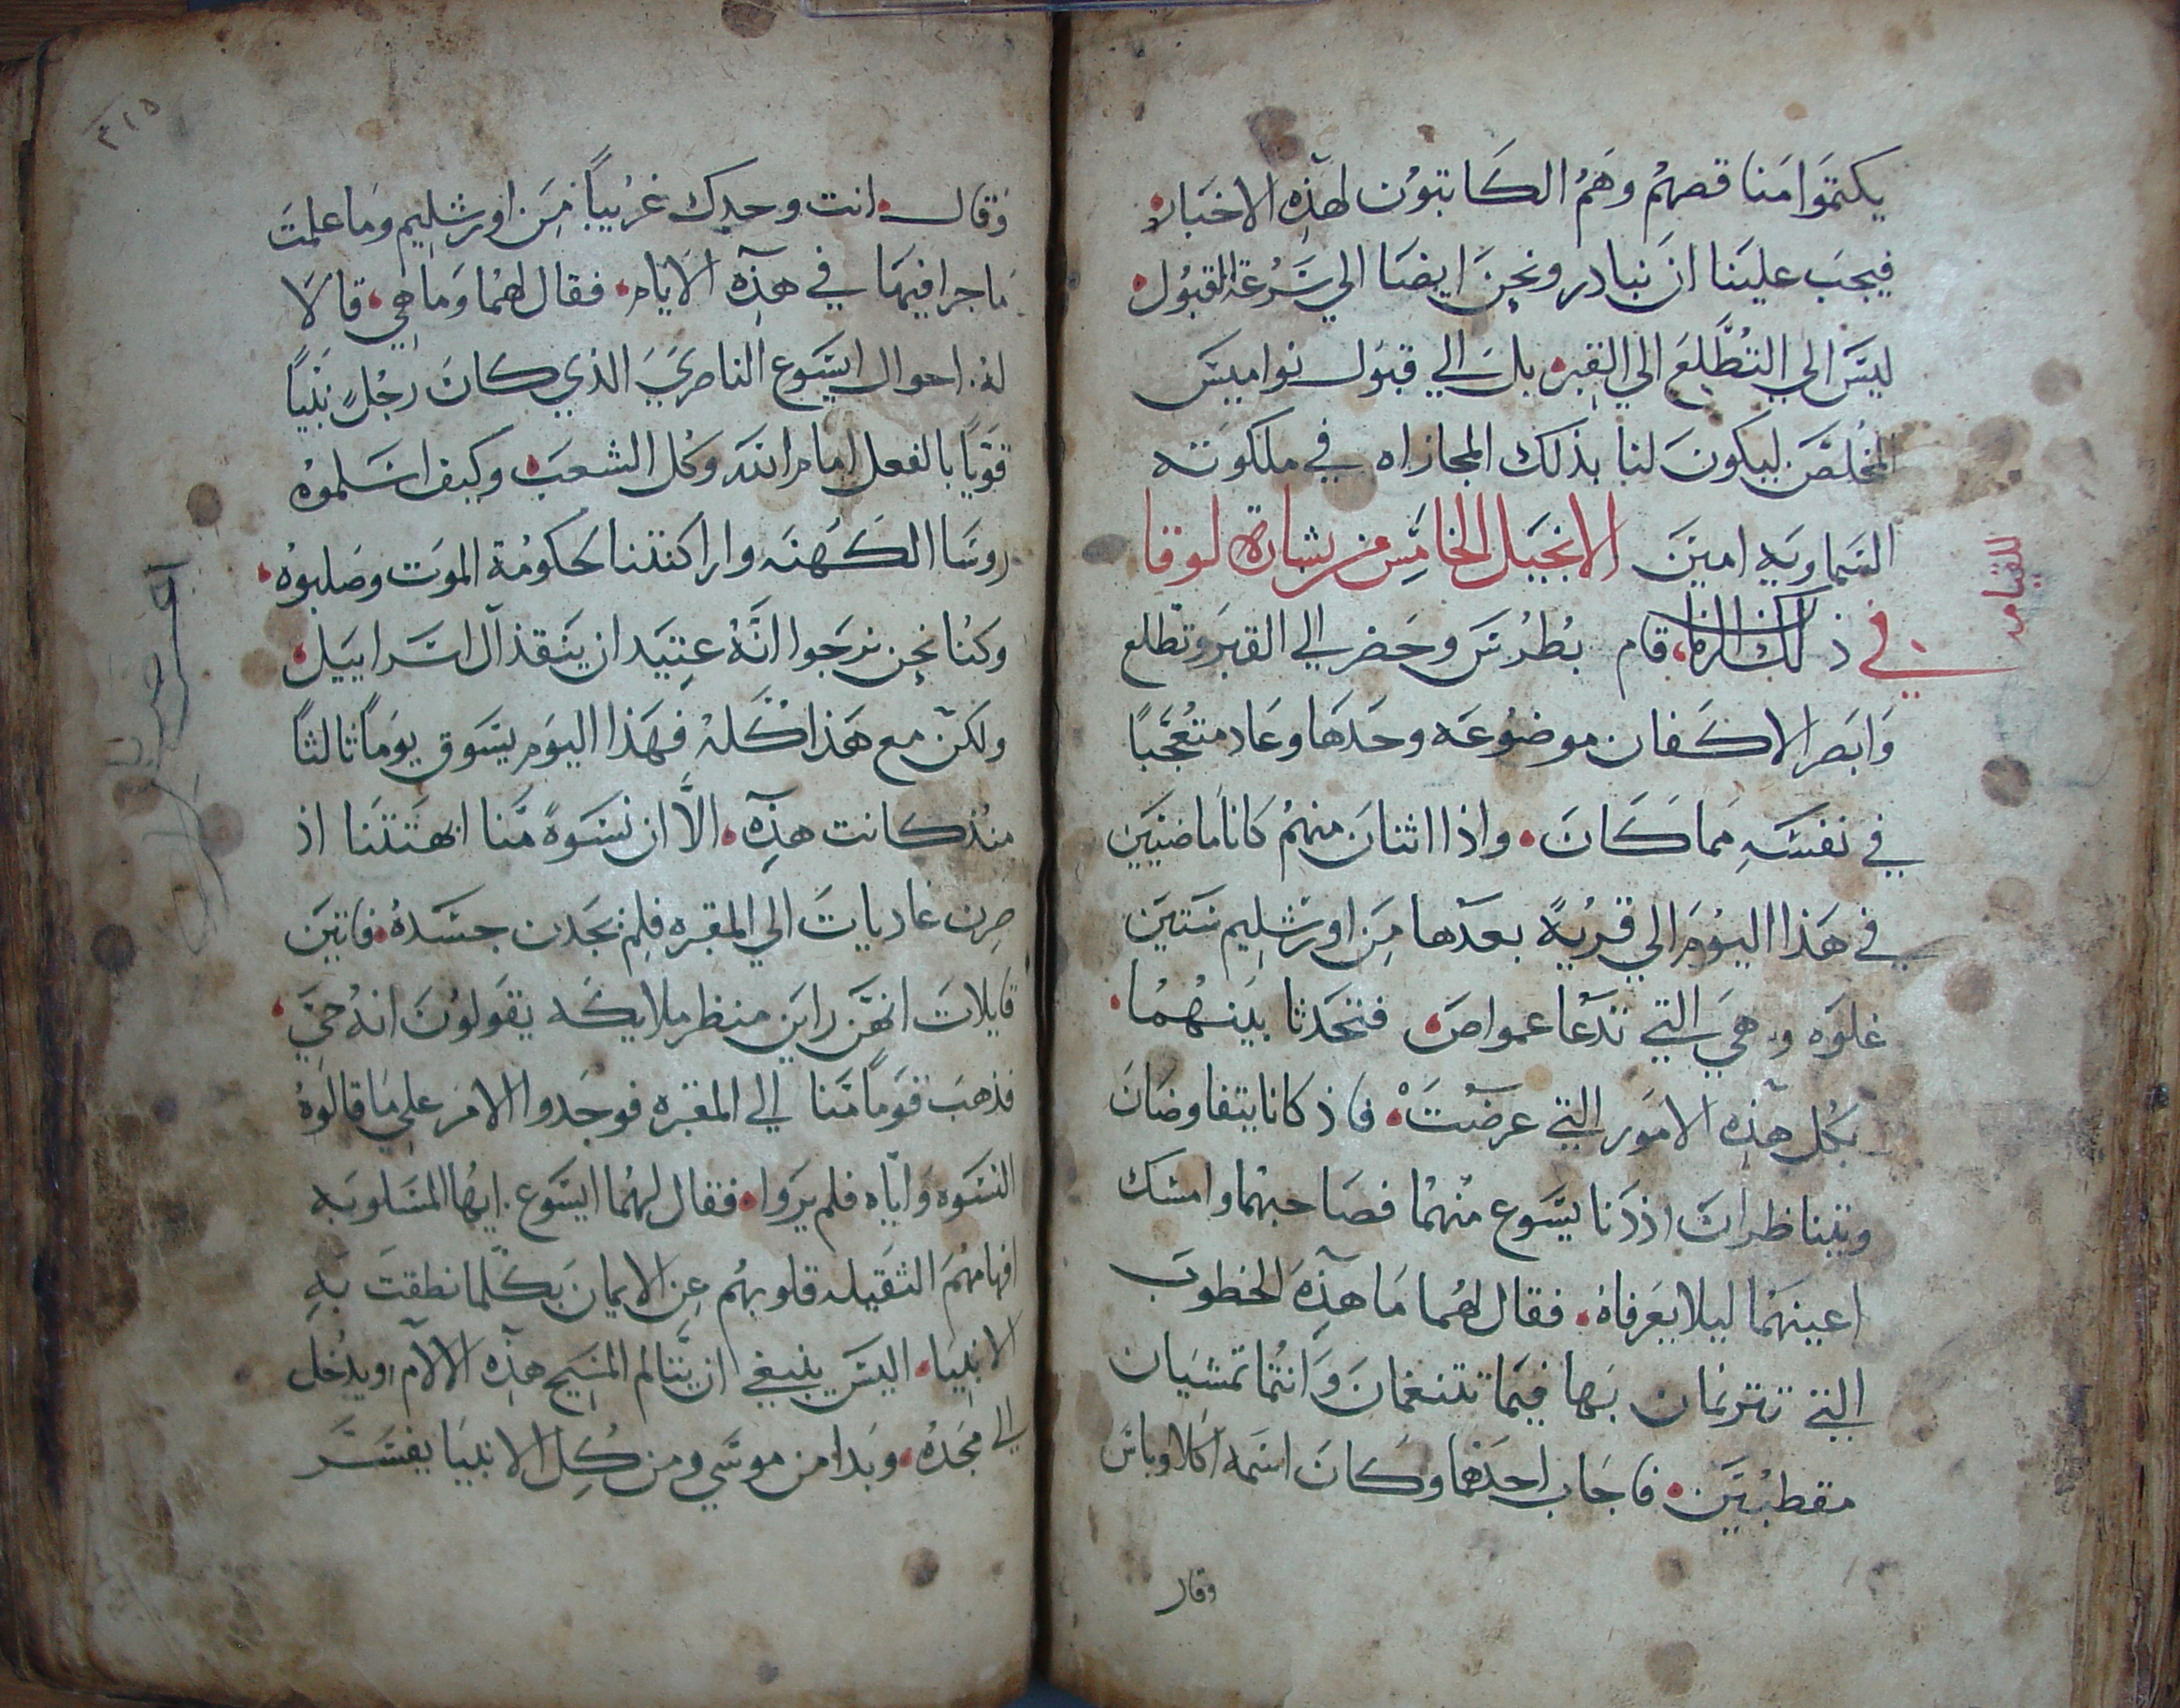 يكتموا منا قصهم وهم الكاتبون لهذه الاخبار
فيجب علينا ان نبادر ونحن ايضا الي سرعة القبول
ليس الي التطلع الي القبر بل الي قبول نواميس
المخلص ليكون لنا بذلك المجازاه في ملكوته
السماويه امين الانجيل الخامس من بشارة لوقا
للقيامه
في ذلك الزمان قام بطرس وحضر الي القبر وتطلع
وابصر الاكفان موضوعه وحدها وعاد متعجبا
في نفسه مما كان واذا اثنان منهم كانا ماضيين
في هذا اليوم الي قرية بعدها من اورشليم ستين
غلوه وهي التي تدعا عمواص فتحدثا بينهما
بكل هذه الامور التي عرضت فاذ كانا يتفاوضان
ويتناظران اذ دنا يسوع منهما فصاحبهما وامسك
اعينهما ليلا يعرفاه فقال لهما ما هذه الخطوب
التي تهترمان بها فيما تتنغمان وانتما تمشيان
مقطبين فاجاب احدهما وكان اسمه اكلاوباس
وقال
٣١٥
وقال انت وحدك غريبا من اورشليم وما علمت
ما جرا فيها في هذه الايام فقال لهما وما هي قالا
له احوال ايسوع الناصري الذي كان رجل نبيا
قويا بالفعل امام الله وكل الشعب وكيف اسلموه
روسا الكهنه واراكنتنا لحكومة الموت وصلبوه
وكنا نحن نرجوا انه عتيد ان ينقذ آل اسراييل
ولكن مع هذا كله فهذا اليوم يسوق يوما ثالثا
منذ كانت هذه الا ان نسوة منا ابهتتنا اذ
صرن غاديات الي المقبره فلم يجدن جسده فاتين
قايلات انهن راين منظر ملايكه يقولون انه حي
فذهب قوما منا الي المقبره فوجدوا الامر علي ما قالوه
النسوه واياه فلم يروا فقال لهما ايسوع ايها المسلوبه
افهامهم الثقيله قلوبهم عن الايمان بكلما نطقت به
الانبيا اليس ينبغي ان يتالم المسيح هذه الالام ويدخل
الي مجده وبدا من موسي ومن كل الانبيا يفسر